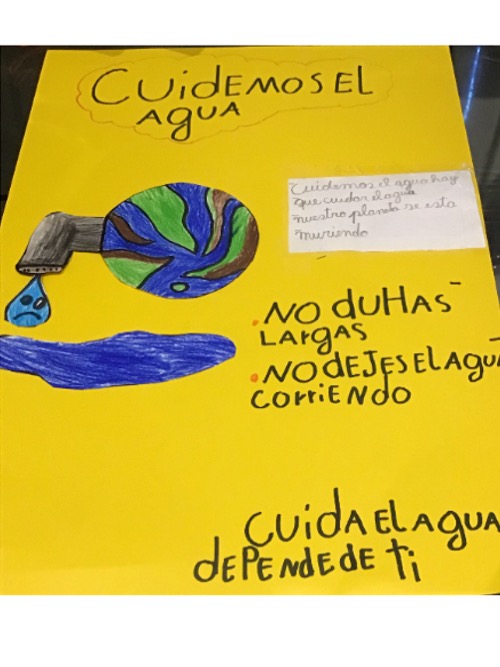 CUIDEMOS EL
AGUA
Cuidemos el agua hay
que cuidar el agua
nuestro planeta se esta
muriendo
. NO DUHAS
LARGAS
. NO DEJES EL AGUA
CORRIENDO
CUIDA EL AGUA
DEPENDE DE TI